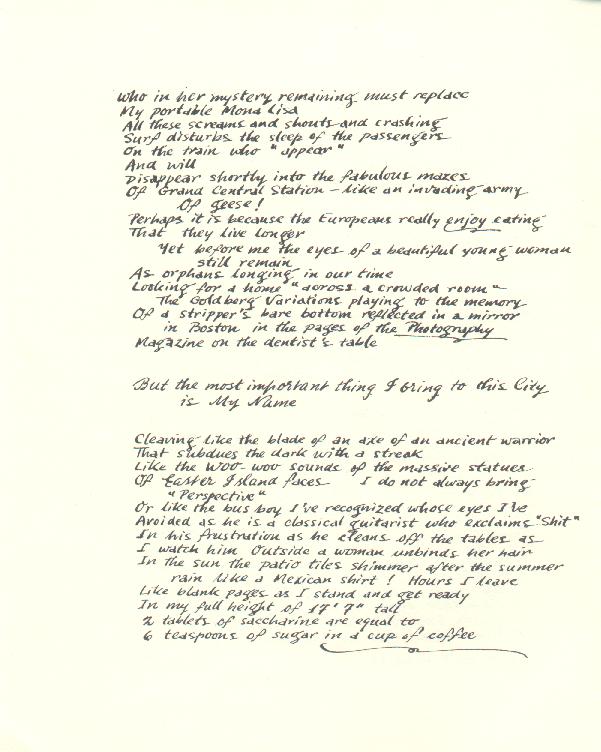 who in her mystery remaining must replace
My portable Mona Lisa
All these screams and shouts and crashing
Surf disturbs the sleep of the passengers
On the train who "appear"
And will
Disappear shortly into the fabulous mazes
Of Grand Central Station – like an invading army
Of geese!
Perhaps it is because the Europeans really enjoy eating
That they live longer
Yet before me the eyes of a beautiful young woman
still remain
As orphans longing in our time
Looking for a home "across a crowded room"
The Goldberg Variations playing to the memory
Of a stripper's bare bottom reflected in a mirror
in Boston in the pages of the Photography
Magazine on the dentist's table
But the most important thing I bring to this City
is My Name
Cleaving like the blade of an axe of an ancient warrior
That subdues the dark with a streak
Like the woo-woo sounds of the massive statues
Of Easter Island faces I do not always bring
"Perspective"
Or like the bus boy I've recognized whose eyes I've
Avoided as he is a classical guitarist who exclaims "Shit"
In his frustration as he cleans off the tables as
I watch him Outside a woman unbinds her hair
In the sun the patio tiles shimmer after the summer
rain like a Mexican shirt! Hours I leave
Like blank pages as I stand and get ready
In my full height of 17' 7" tall
2 tablets of saccharine are equal to
6 teaspoons of sugar in a cup of coffee